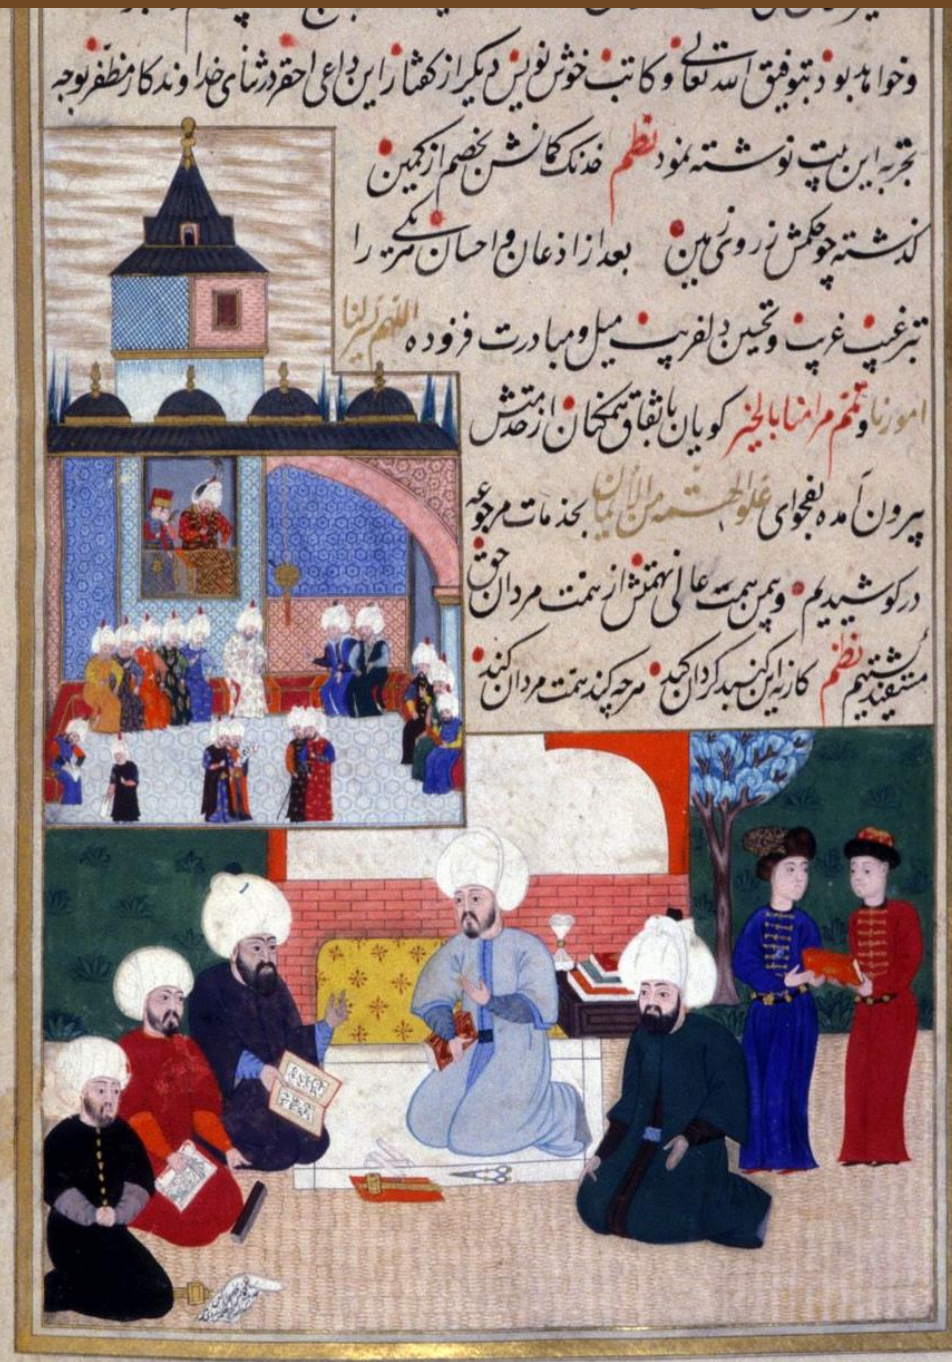 وخواهد بود بتوفیق الله تعالی و کاتب خوش نویس دیگر از کفتار این داعی احقر در ثنای خداوندکار مظفر بوجه
تجربه این بیت نوشته نمود نظم خدنک کمانش بخصم از کمین
کذشته چو حکمش ز روی زمین بعد از اذعان و احسان هر یکی را
بترغیب غریب و تحسین دلفریب میل و مبادرت فزوده اللهم یسر لنا
امورنا و تمم مرامنا بالخیر کویان باتفاق همکنان از خدمتش
بیرون آمده بفحوای علو الهمه من الایمان بخدمات مرجوعه
در کوشیدیم و بیمن همت عالی نهمتش از همت مردان حق
مستفید کشتیم نظم کار نه این کنبد کردان کند هر چه کند همت مردان کند